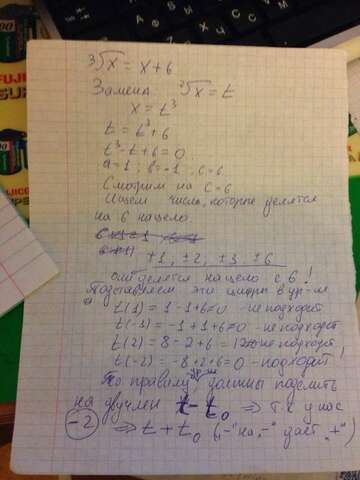 ³√x = x+6
Замена ³√x = t
x = t³
t = t³+6
t³-t+6=0
a=1; b=-1, c=6
Смотрим на c=6
Ищем числа, которые делятся
на 6 нацело
±1, ±2, ±3, ±6
они делятся нацело с 6!
Подставляем эти цифры в ур-ие
t(1) = 1-1+6≠0 - не подходит
t(-1) = -1+1+6≠0 - не подходит
t(2) = 8-2+6 = 12≠0 не подходит
t(-2) = -8+2+6=0 - подходит!
По правилу должны поделить
на двучлен t-t₀ ⇒ т.к у нас
-2 ⇒ t+t₀ („-" на „-" даёт „+")
FUJI
SUPER